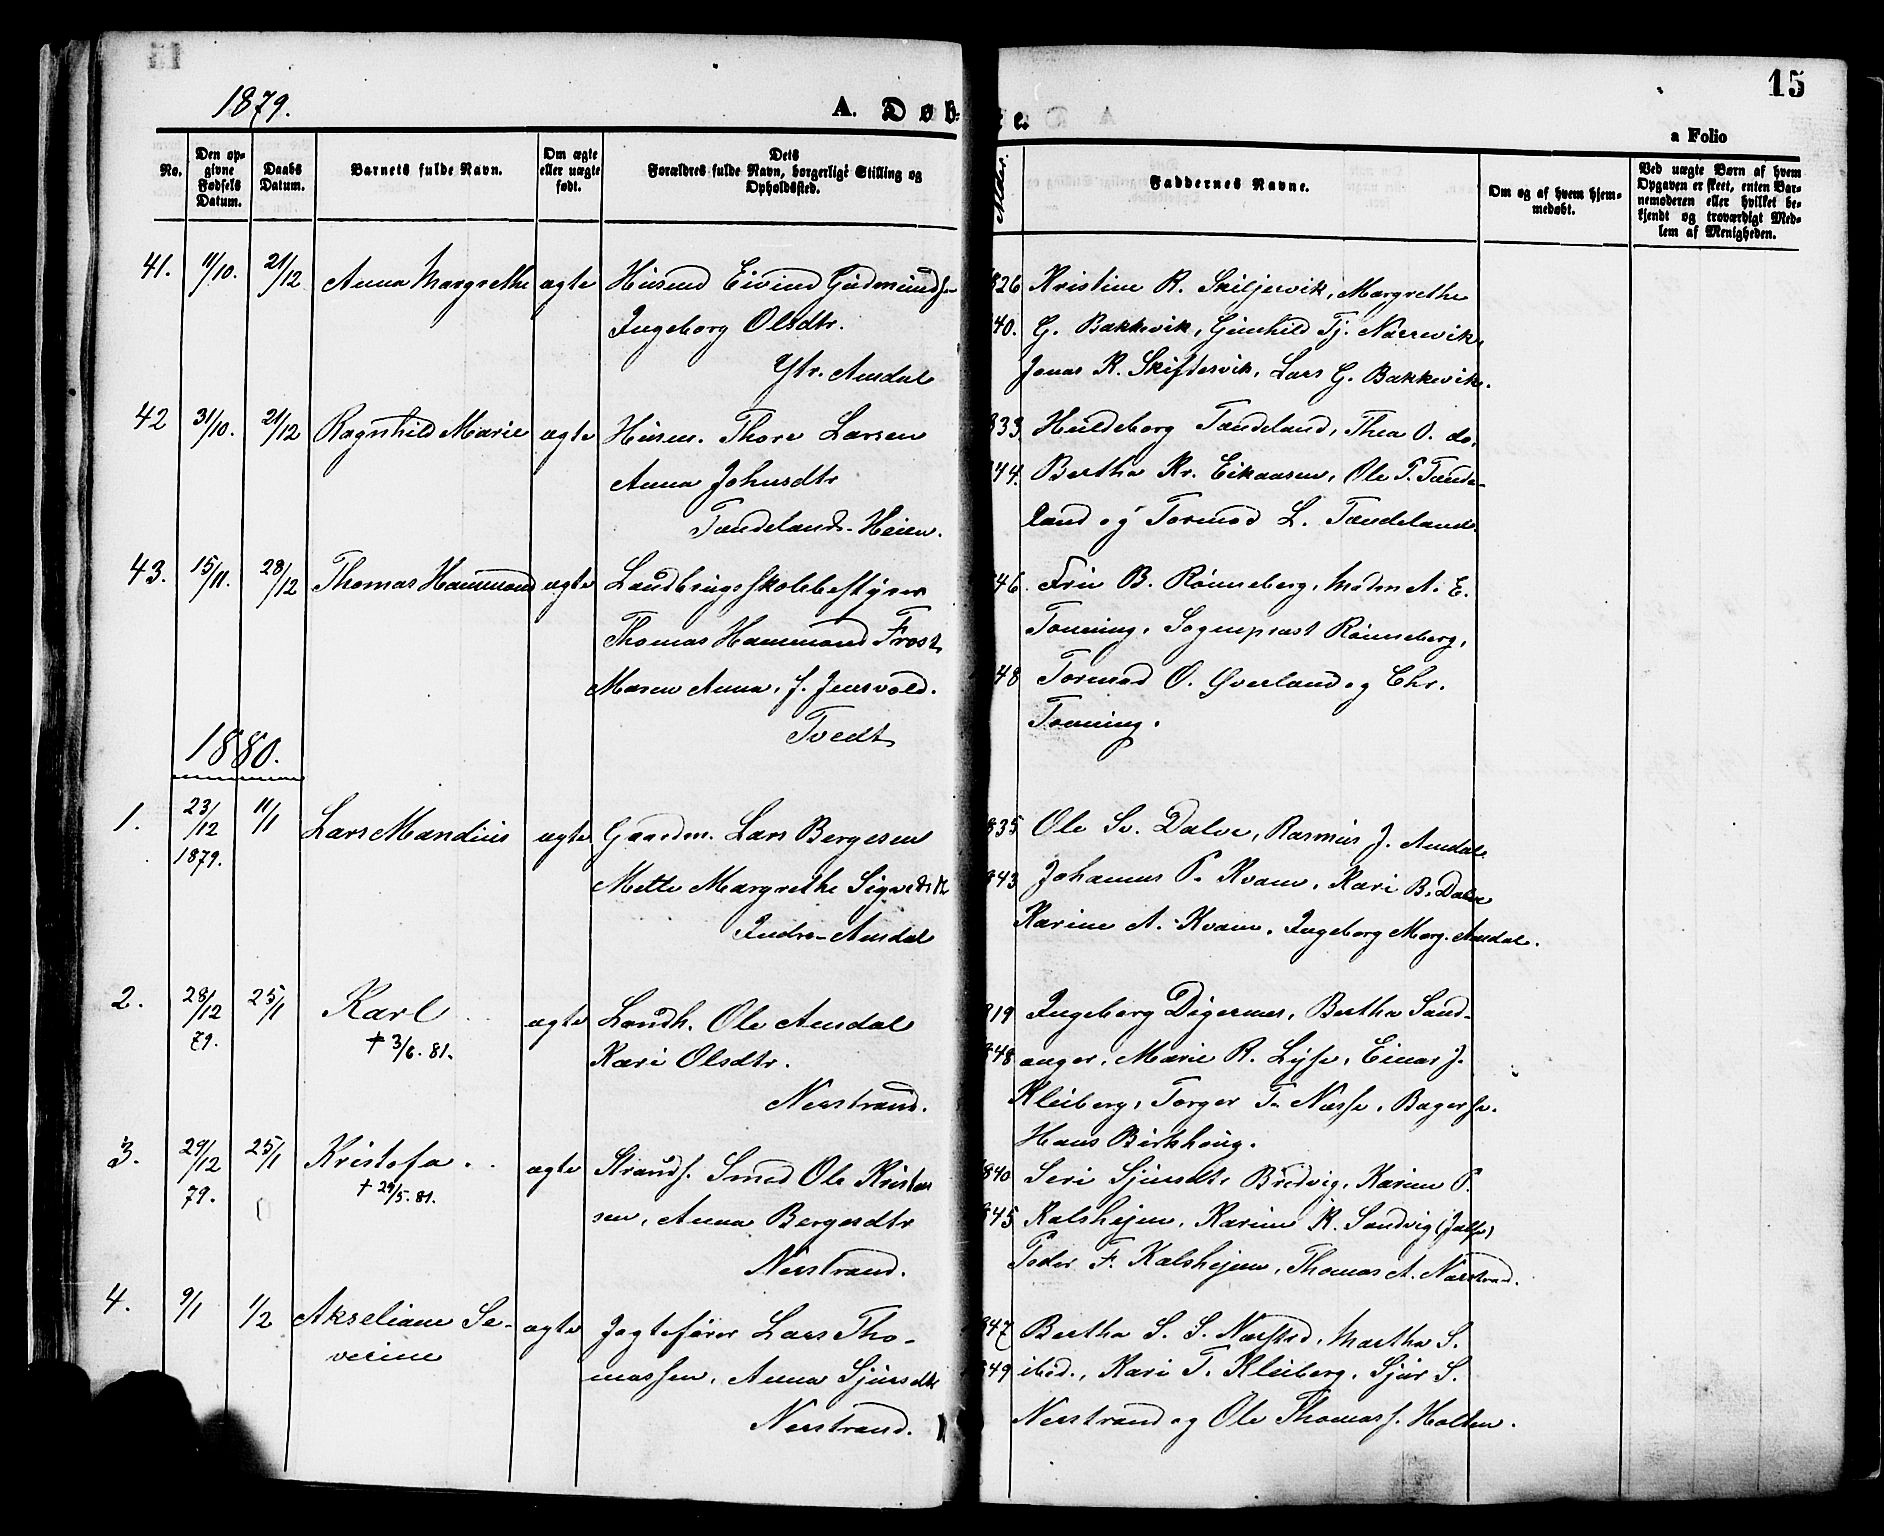 1879.
A. Døb- e.
15
a Folio
No.
Den op-
givne
Fødsels
Datum.
Daabs
Datum.
Barnets fulde Navn.
Om ægte
eller uægte
født.
Dets
Forældres fulde Navn, borgerlige Stilling og
Opholdssted.
Alder.
Faddernes Navne.
Om og af hvem hjem-
medøbt.
Ved uægte Børn af hvem
Opgaven er skeet, enten Bar-
nemoderen eller hvilket be-
kjendt og troværdigt Med-
lem af Menigheden.
41. 11/10. 21/12 Anna Margrethe ægte Husmd Eivind Gudmunds-
Ingeborg Olsdtr.
Ytr. Amdal
826 Kristine R. Skiljevik, Margrethe
40. G. Bakkevik, Gunhild Tj. Narrevik,
Jonas R. Skiftesvik, Lars G. Bakkevik.
42 31/10. 21/12 Ragnhild Marie ægte Husm. Thore Larsen
Anna Johnsdtr
Tændelands-Heien.
833. Huldeborg Tændeland, Thea O. do.
44. Bertha Kr. Eikaasen, Ole T. Tænde-
land og Tormod L. Tændeland.
43. 15/11. 28/12 Thomas Hammond ægte Landbrugsskolebestyrer
Thomas Hammond Frost
Maren Anna, f. Jensvold.
Tvedt
46. Fru B. Rønneberg, Madm A. E.
Tonning, Sogneprest Rønneberg,
48 Tormod O. Øverland og Chr.
Tonning.
1880.
1. 23/12 1879. 11/1 Lars Mandius ægte Gaardm. Lars Bergesen
Mette Margrethe Sigvdtr
Indre-Amdal
835. Ole Sv. Dalve, Rasmus J. Amdal
843 Johannes P. Kvam, Kari B. Dalve
Karine A. Kvam, Ingeborg Marg. Amdal.
2. 28/12 79. 25/1 Karl ægte Landh. Ole Amdal
+ 3/6. 81.
Kari Olsdtr.
Nerstrand.
819 Ingeborg Digernes, Bertha Sand-
848. anger, Marie R. Lyse, Einar J.
Kleiberg, Torger T. Næsse, Bagers.
Hans Birkhoug.
3. 29/12 79. 25/1 Kristofa. ægte Strands. Smed Ole Kristen
+ 29/5. 81.
sen, Anna Bergesdtr
Nerstrand.
840 Seri Sjursdt. Bredvig, Karine P.
845 Kalshejen, Karine K. Sandvig (Jælse)
Peder F. Kalshejen, Thomas A. Nærstrand.
4. 9/1 1/2 Akseliane Se-
verine
ægte Jagtefører Lars Tho-
massen, Anna Sjursdtr
Nerstrand.
847 Bertha S. S. Nærsted, Martha S.
849 ibid., Kari T. Kleiberg, Sjur S.
Nerstrand og Ole Thomass. Holten.